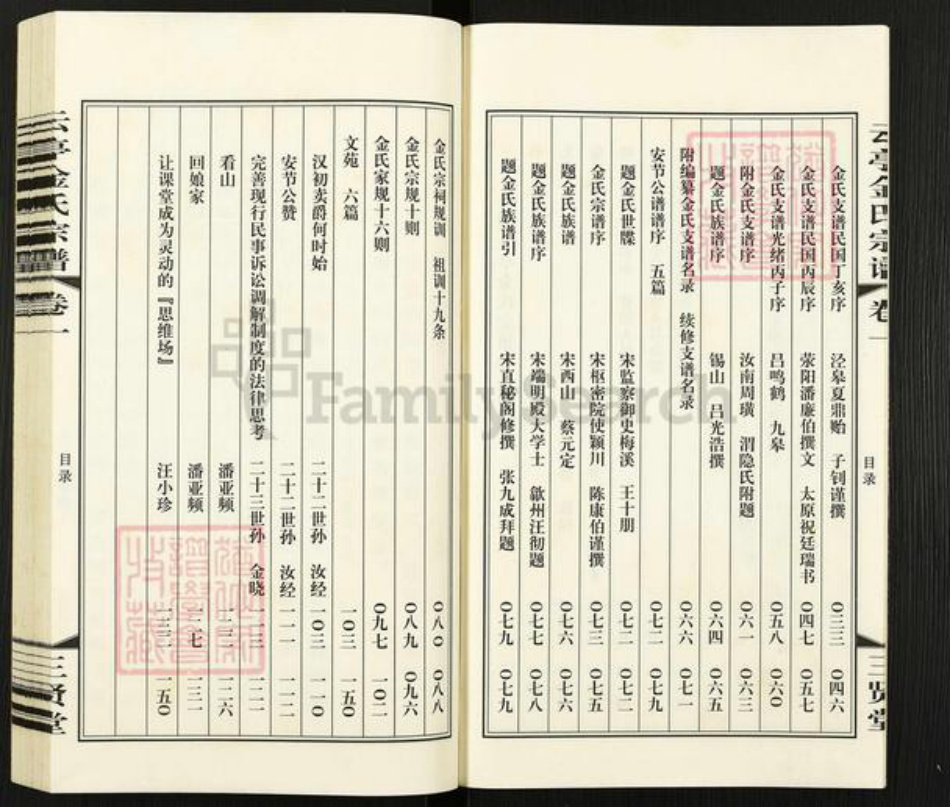 云亭金氏宗谱 卷一
目录
三贤堂
金氏支谱民国丁亥序 泾皋夏鼎贻 子钊谨撰 〇三三 〇四六
金氏支谱民国丙辰序 荥阳潘廉伯撰文 太原祝廷瑞书 〇四七 〇五七
金氏支谱光绪丙子序 吕鸣鹤 九皋 〇五八 〇六〇
附金氏支谱序 汝南周璜 渭隐氏附题 〇六一 〇六三
题金氏族谱序 锡山 吕光浩撰 〇六四 〇六五
附编纂金氏支谱名录 续修支谱名录 〇六六 〇七一
安节公谱谱序 五篇 〇七二 〇七九
题金氏世牒 宋监察御史梅溪 王十朋 〇七二 〇七二
金氏宗谱序 宋枢密院使颖川 陈康伯谨撰 〇七三 〇七五
题金氏族谱 宋西山 蔡元定 〇七六 〇七六
题金氏族谱序 宋端明殿大学士 歙州汪彻题 〇七七 〇七八
题金氏族谱引 宋直秘阁修撰 张九成拜题 〇七九 〇七九
金氏宗祠规训 祖训十九条 〇八〇 〇八八
金氏宗规十则 〇八九 〇九六
金氏家规十六则 〇九七 一〇二
文苑 六篇 一〇三 一五〇
汉初卖爵何时始 二十二世孙 汝经 一〇三 一一〇
安节公赞 二十二世孙 汝经 一一一 一一二
完善现行民事诉讼调解制度的法律思考 二十三世孙 金晓 一一三 一二二
看山 潘亚频 一二三 一二六
回娘家 潘亚频 一二七 一三二
让课堂成为灵动的『思维场』 汪小珍 一三三 一五〇
云亭金氏宗谱 卷一
目录
三贤堂
FamilySearch